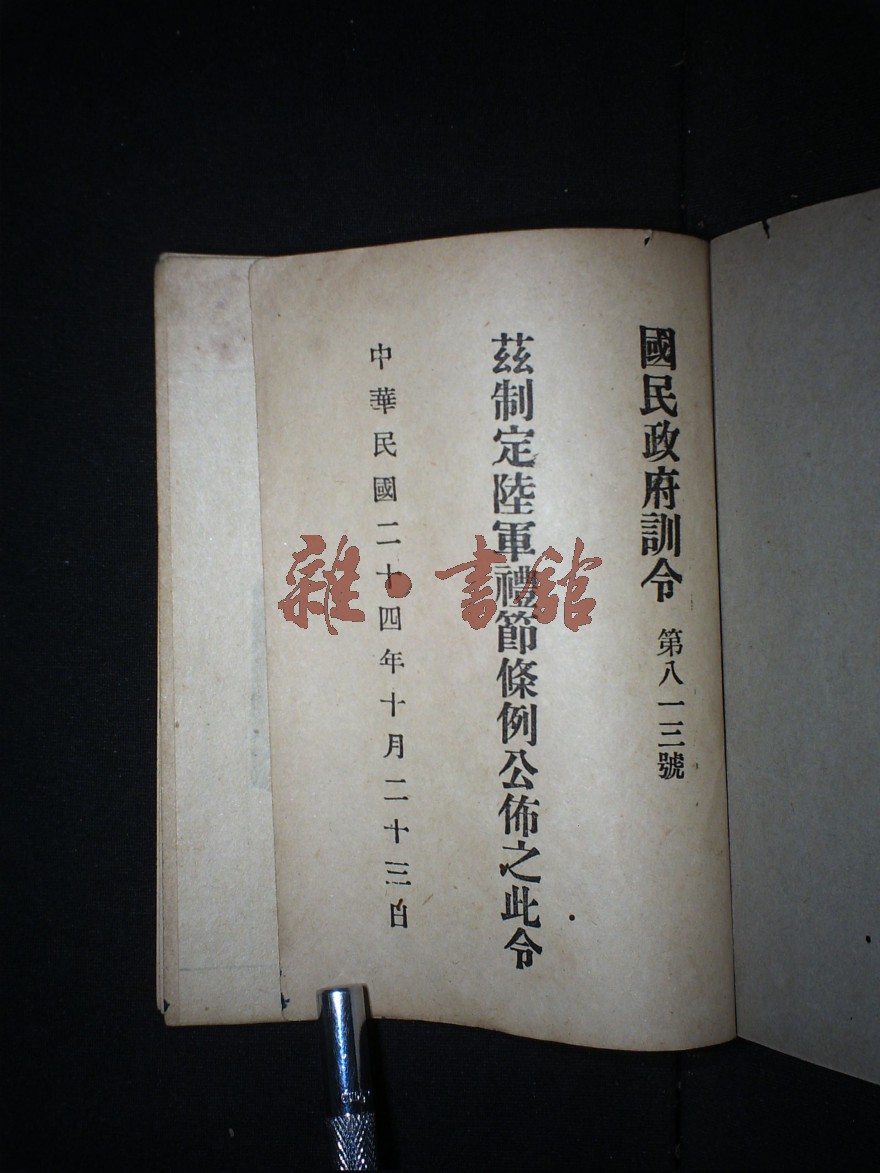 國民政府訓令 第八一三號
茲制定陸軍禮節條例公佈之此令
中華民國二十四年十月二十三日
雜·書館